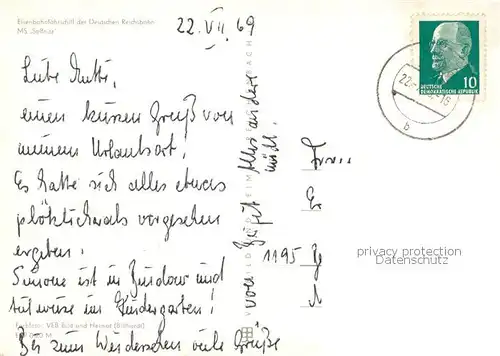 Eisenbahnfährschiff der Deutschen Reichsbahn
MS „Saßnitz"
22. VII. 69
DEUTSCHE
DEMOKRATISCHE REPUBLIK
10
22.
b
Liebe Mutti,
einen kurzen Gruß von
meinem Urlaubsort.
Es hatte sich alles etwas
plötzlich als vorgesehen
ergeben.
Simone ist in Zeudow und
teilweise im Kindergarten!
Bis zum Wiedersehen viele Grüße
von Birgit
Alles andere
mdl.
VEB BILD UND HEIMAT REICHENBACH
Frau
1195
privacy protection
Datenschutz
VEB Bild und Heimat